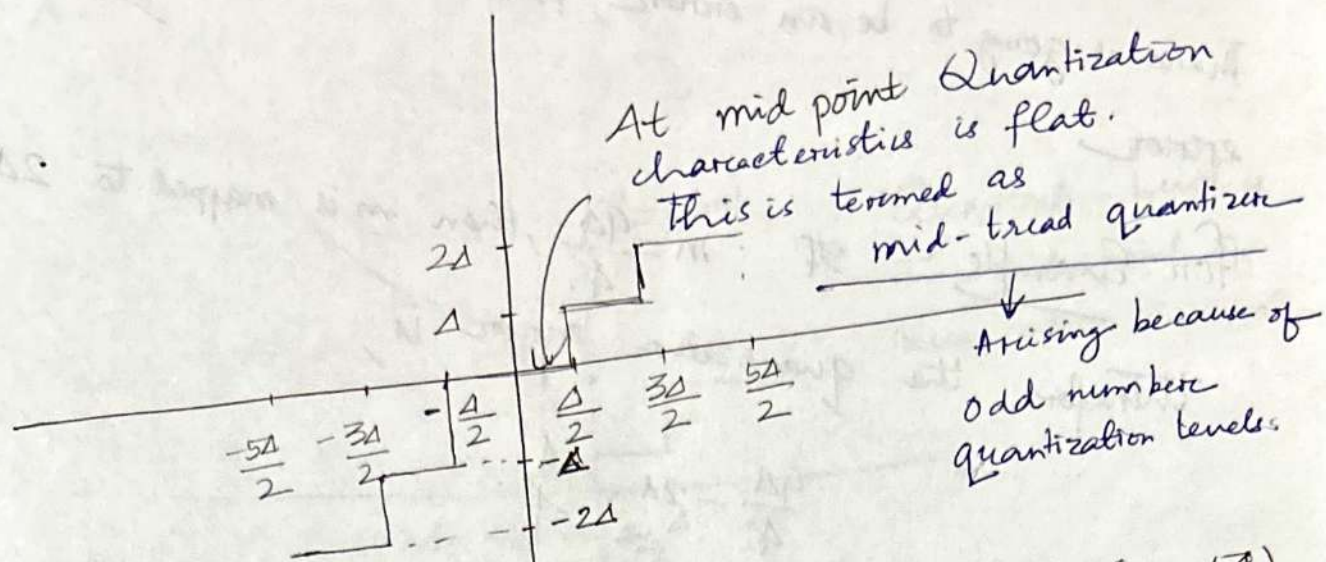 At mid point Quantization
characteristics is flat.
This is termed as
mid-tread quantizer
Arising because of
odd number
quantization levels.
2Δ
Δ
-5Δ/2 -3Δ/2 -Δ/2 Δ/2 3Δ/2 5Δ/2
-Δ
-2Δ